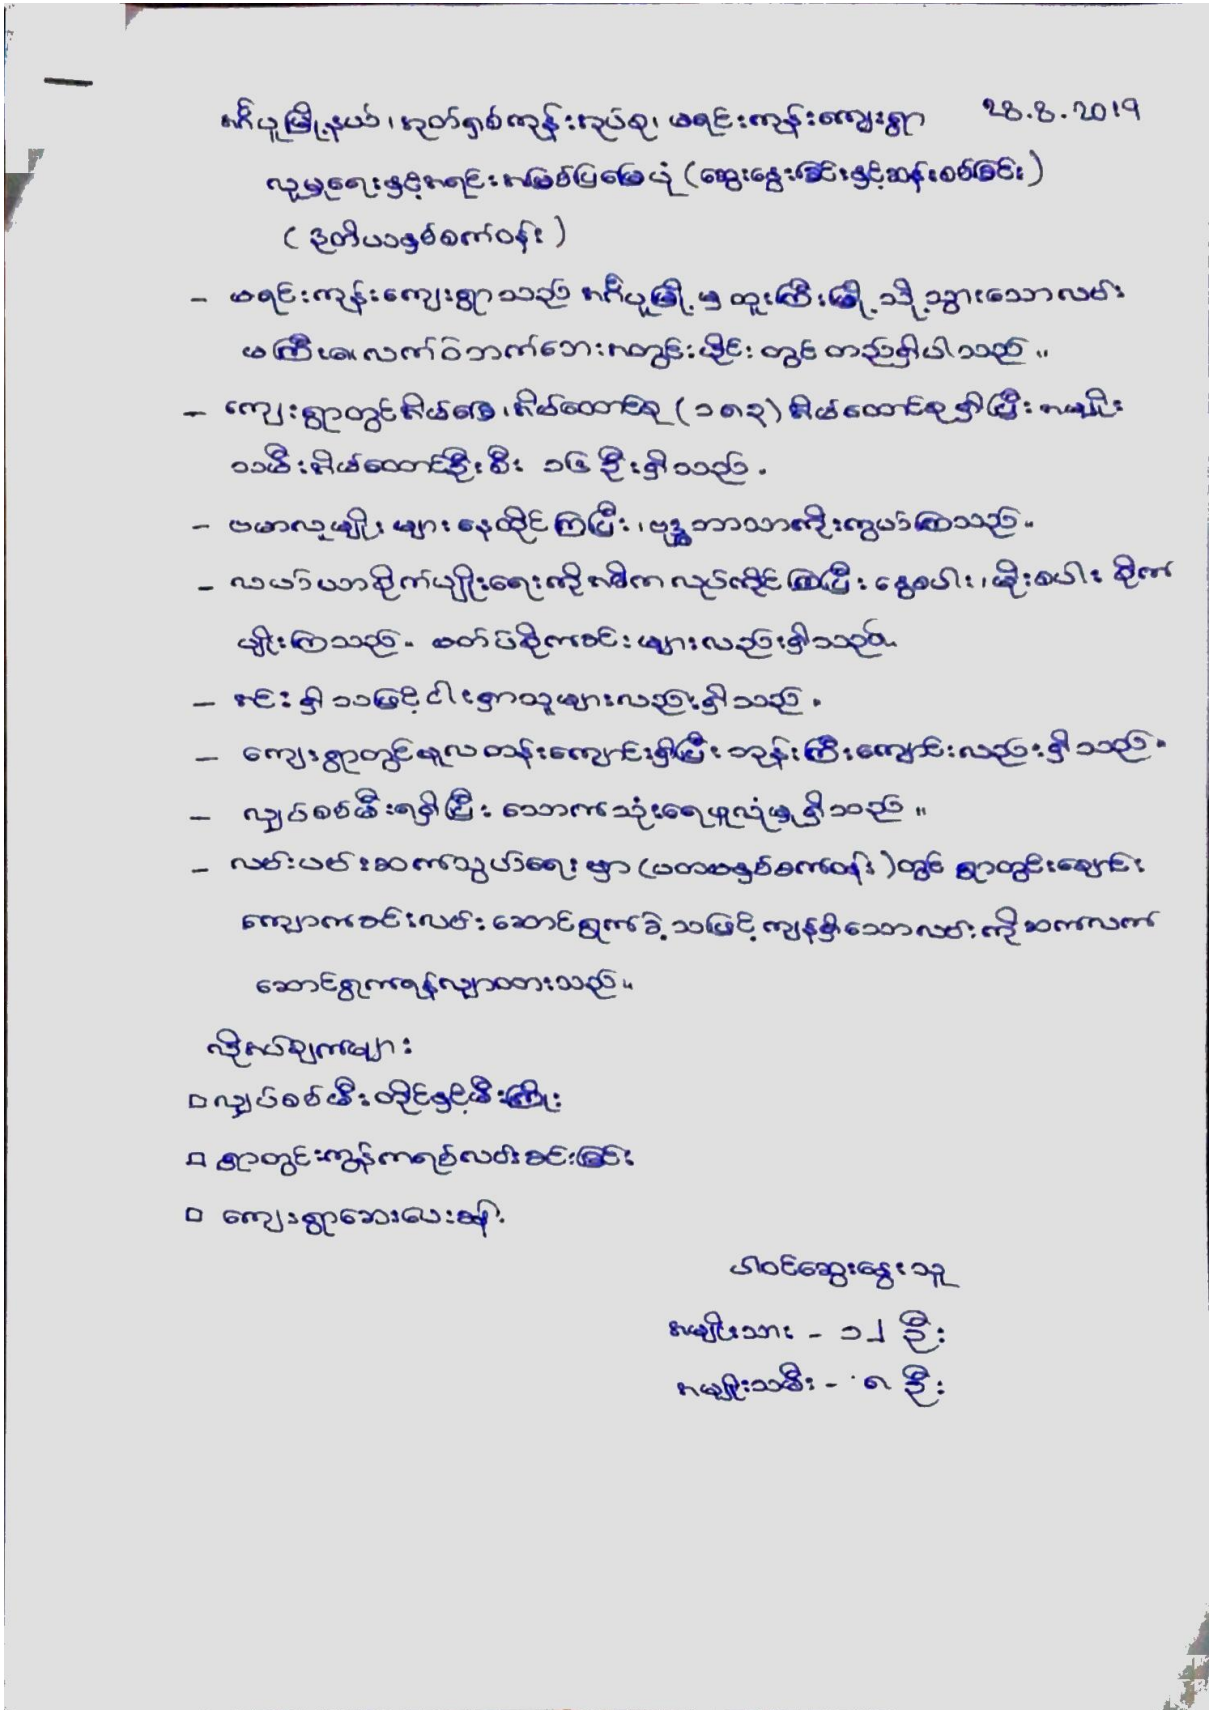 အင်္ဂပူမြို့နယ်၊ အုတ်ရှစ်ကုန်းအုပ်စု၊ မရင်းကုန်းကျေးရွာ 28.8.2019
လူမှုရေးနှင့်အရင်းအမြစ်ပြမြေပုံ (ဆွေးနွေးခြင်းနှင့်ဆန်းစစ်ခြင်း)
(ဒုတိယနှစ်စက်ဝန်း)
- မရင်းကုန်းကျေးရွာသည် အင်္ဂပူမြို့မှ ထူးကြီးမြို့သို့သွားသောလမ်း
မကြီး၏လက်ဝဲဘက်ဘေးအတွင်းပိုင်းတွင်တည်ရှိပါသည်။
- ကျေးရွာတွင်အိမ်ခြေ၊အိမ်ထောင်စု (၁၈၃) အိမ်ထောင်စုရှိပြီးအမျိုး
သမီးအိမ်ထောင်ဦးစီး ၁၆ ဦးရှိသည်.
- ဗမာလူမျိုးများနေထိုင်ကြပြီး၊ ဗုဒ္ဓဘာသာကိုးကွယ်ကြသည်။
- လယ်ယာစိုက်ပျိုးရေးကိုအဓိကလုပ်ကိုင်ကြပြီး နွေစပါး၊ မိုးစပါး စိုက်
ပျိုးကြသည်။ မတ်ပဲစိုက်ခင်းများလည်းရှိသည်။
- အင်းရှိသဖြင့်ငါးရှာသူများလည်းရှိသည်.
- ကျေးရွာတွင်မူလတန်းကျောင်းရှိပြီးဘုန်းကြီးကျောင်းလည်းရှိသည်.
- လျှပ်စစ်မီးရရှိပြီး သောက်သုံးရေဖူလုံမှုရှိသည်။
- လမ်းပမ်းဆက်သွယ်ရေးမှာ (ပထမနှစ်စက်ဝန်း) တွင် ရွာတွင်းချောင်း
ကျောက်ခင်းလမ်းဆောင်ရွက်ခဲ့သဖြင့်ကျန်ရှိသောလမ်းကိုဆက်လက်
ဆောင်ရွက်ရန်လျာထားသည်။
လိုအပ်ချက်များ
□ လျှပ်စစ်မီးတိုင်နှင့်မီးကြိုး
□ ရွာတွင်းကွန်ကရစ်လမ်းခင်းခြင်း
□ ကျေးရွာဆေးပေးခန်း
ပါဝင်ဆွေးနွေးသူ
အမျိုးသား - ၁၂ ဦး
အမျိုးသမီး - ၈ ဦး